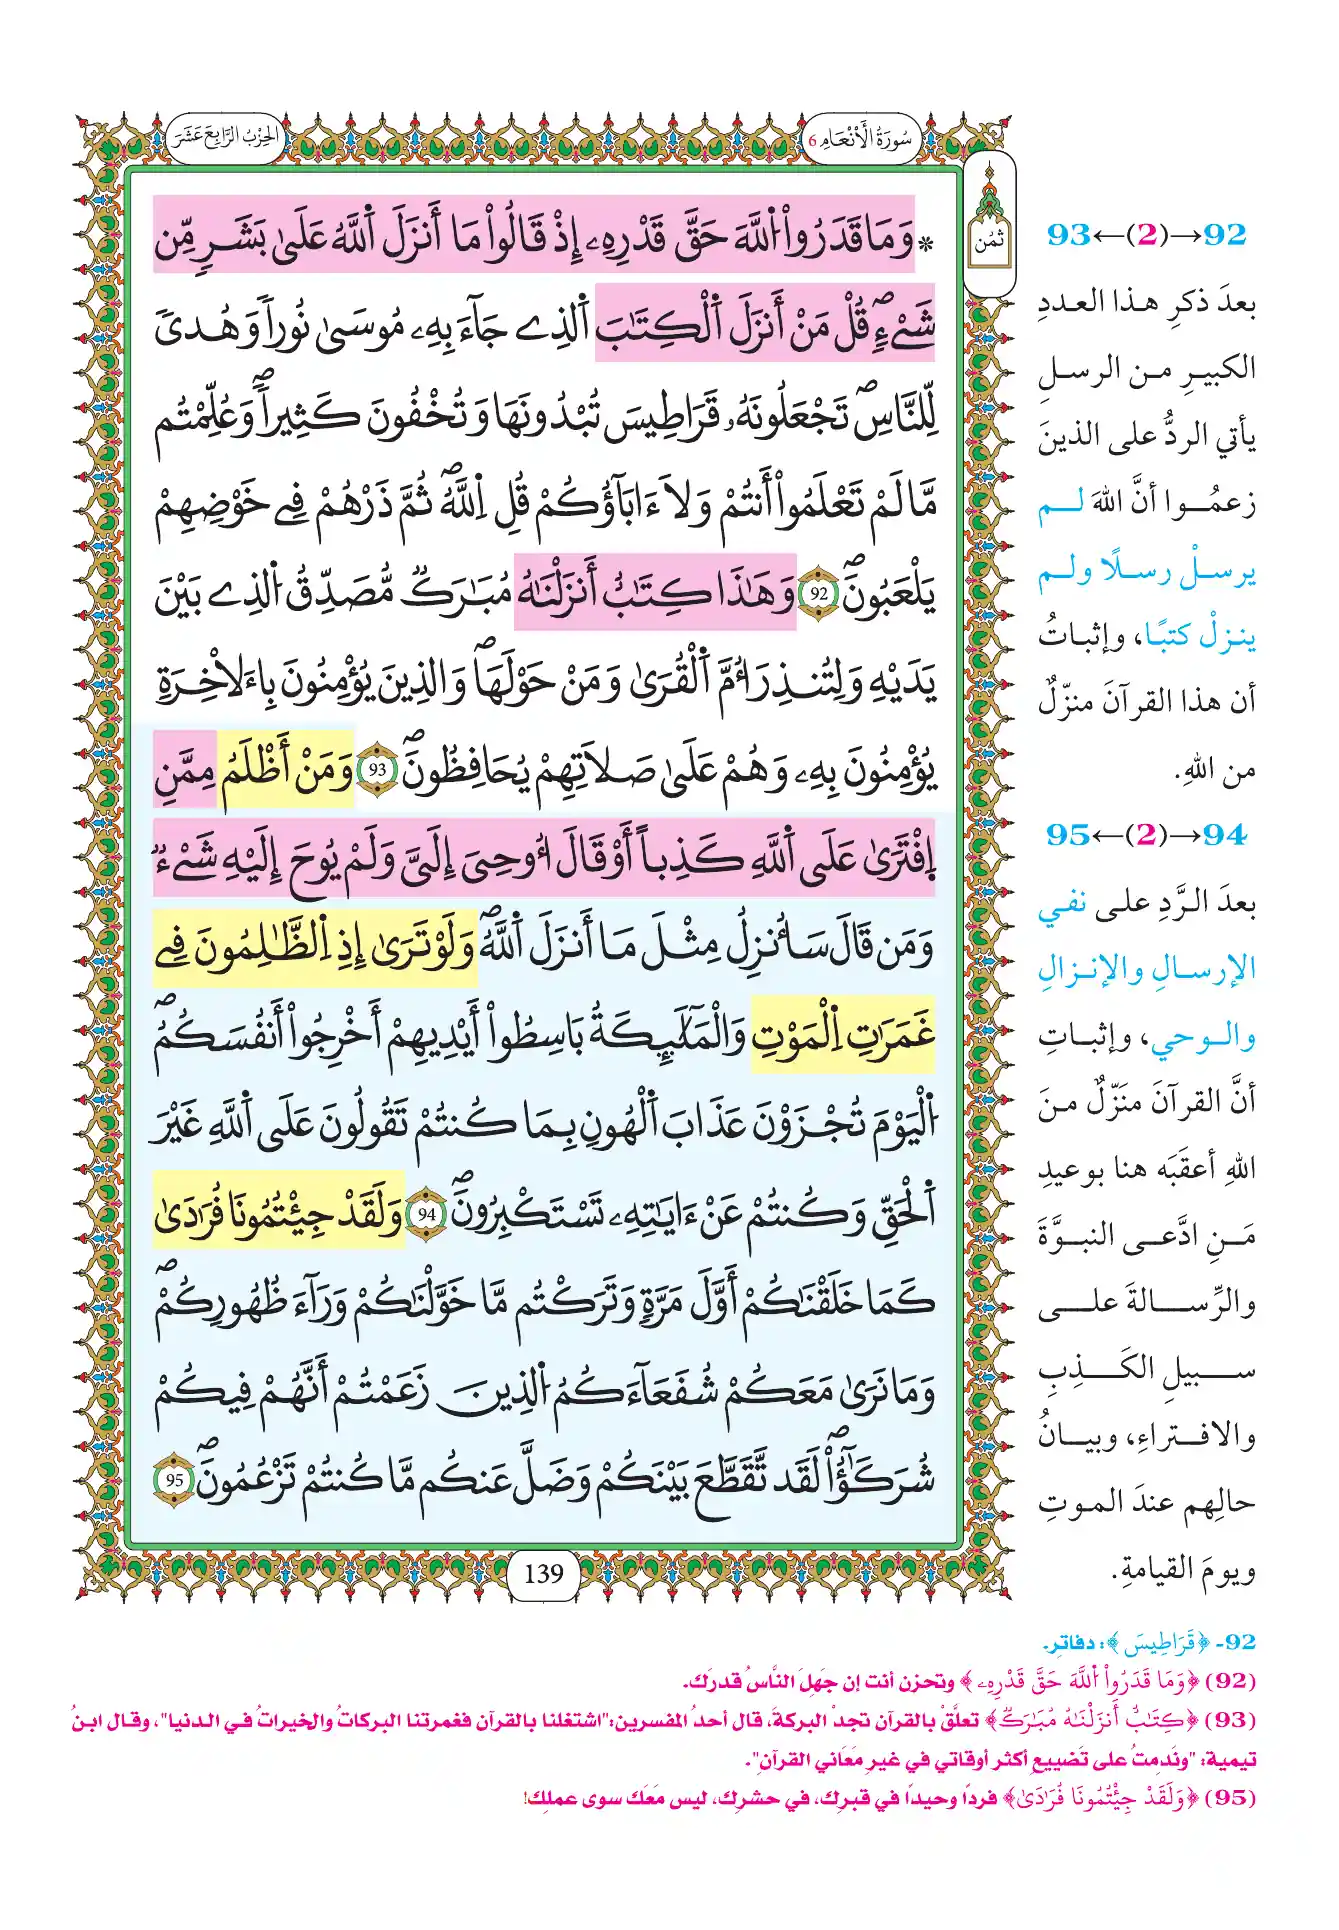 سُورَةُ الْأَنْعَام 6
الْحِزْبُ الرَّابِعَ عَشَرَ
ثُمُن
* وَمَا قَدَرُواْ اُللَّهَ حَقَّ قَدْرِهِۦ إِذْ قَالُواْ مَا أَنزَلَ اَللَّهُ عَلَىٰ بَشَرٖ مِّن
شَےْءٖۖ قُلْ مَنْ أَنزَلَ اَلْكِتَٰبَ اَلذِے جَآءَ بِهِۦ مُوسَىٰ نُوراٗ وَهُدىٗ
لِّلنَّاسِۖ تَجْعَلُونَهُۥ قَرَاطِيسَ تُبْدُونَهَا وَتُخْفُونَ كَثِيراٗۖ وَعُلِّمْتُم
مَّا لَمْ تَعْلَمُواْ أَنتُمْ وَلَا ءَابَآؤُكُمْ قُلِ اِللَّهُۖ ثُمَّ ذَرْهُمْ فِے خَوْضِهِمْ
يَلْعَبُونَۖ 92 وَهَٰذَا كِتَٰبٌ أَنزَلْنَٰهُ مُبَٰرَكٞ مُّصَدِّقُ اُلذِے بَيْنَ
يَدَيْهِ وَلِتُنذِرَ أُمَّ اَلْقُرَىٰ وَمَنْ حَوْلَهَاۖ وَالذِينَ يُؤْمِنُونَ بِالَاخِرَةِ
يُؤْمِنُونَ بِهِۦ وَهُمْ عَلَىٰ صَلَاتِهِمْ يُحَافِظُونَۖ 93 وَمَنْ أَظْلَمُ مِمَّنِ
اِفْتَرَىٰ عَلَى اَللَّهِ كَذِباً أَوْ قَالَ أُوحِيَ إِلَيَّ وَلَمْ يُوحَ إِلَيْهِ شَےْءٞ
وَمَن قَالَ سَأُنزِلُ مِثْلَ مَا أَنزَلَ اَللَّهُۖ وَلَوْ تَرَىٰ إِذِ اِلظَّٰلِمُونَ فِے
غَمَرَٰتِ اِلْمَوْتِ وَالْمَلَٰٓئِكَةُ بَاسِطُواْ أَيْدِيهِمْ أَخْرِجُواْ أَنفُسَكُمُۖ
اُلْيَوْمَ تُجْزَوْنَ عَذَابَ اَلْهُونِ بِمَا كُنتُمْ تَقُولُونَ عَلَى اَللَّهِ غَيْرَ
اَلْحَقِّ وَكُنتُمْ عَنْ ءَايَٰتِهِۦ تَسْتَكْبِرُونَۖ 94 وَلَقَدْ جِئْتُمُونَا فُرَٰدَىٰ
كَمَا خَلَقْنَٰكُمْ أَوَّلَ مَرَّةٖ وَتَرَكْتُم مَّا خَوَّلْنَٰكُمْ وَرَآءَ ظُهُورِكُمْۖ
وَمَا نَرَىٰ مَعَكُمْ شُفَعَآءَكُمُ اُلذِينَ زَعَمْتُمْ أَنَّهُمْ فِيكُمْ
شُرَكَٰٓؤُاْۖ لَقَد تَّقَطَّعَ بَيْنَكُمْ وَضَلَّ عَنكُم مَّا كُنتُمْ تَزْعُمُونَۖ 95
139
92→(2)←93
بعدَ ذكرِ هذا العددِ
الكبيرِ من الرسلِ
يأتي الردُّ على الذينَ
زعمُوا أنَّ اللهَ لم
يرسلْ رسلًا ولم
ينزلْ كتبًا، وإثباتُ
أن هذا القرآنَ منزّلٌ
من اللهِ.
94→(2)←95
بعدَ الرَّدِ على نفي
الإرسالِ والإنزالِ
والوحي، وإثباتِ
أنَّ القرآنَ منَزّلٌ منَ
اللهِ أعقَبَه هنا بوعيدِ
مَنِ ادَّعى النبوَّةَ
والرِّسالةَ على
سبيلِ الكَذِبِ
والافتراءِ، وبيانُ
حالِهم عندَ الموتِ
ويومَ القيامةِ.
92- ﴿قَرَاطِيسَ﴾: دفاتر.
(92) ﴿وَمَا قَدَرُواْ اُللَّهَ حَقَّ قَدْرِهِۦ﴾ وتحزن أنت إن جَهِلَ النَّاسُ قدرَك.
(93) ﴿كِتَٰبٌ أَنزَلْنَٰهُ مُبَٰرَكٞ﴾ تعلَّقْ بالقرآن تجدْ البركةَ، قال أحدُ المفسرين:"اشتغلنا بالقرآن فغمرتنا البركاتُ والخيراتُ في الدنيا"، وقال ابنُ
تيمية: "ونَدِمتُ على تَضييعِ أكثر أوقاتي في غيرِ مَعَاني القرآنِ".
(95) ﴿وَلَقَدْ جِئْتُمُونَا فُرَٰدَىٰ﴾ فردًا وحيدًا في قبرِك، في حشرِك، ليس مَعَك سوى عملِك!